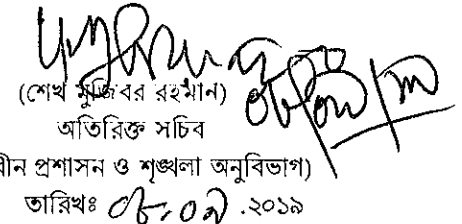 (শেখ মুজিবর রহমান)
অতিরিক্ত সচিব
ীন প্রশাসন ও শৃঙ্খলা অনুবিভাগ)
তারিখঃ ০৮.০৯.২০১৯